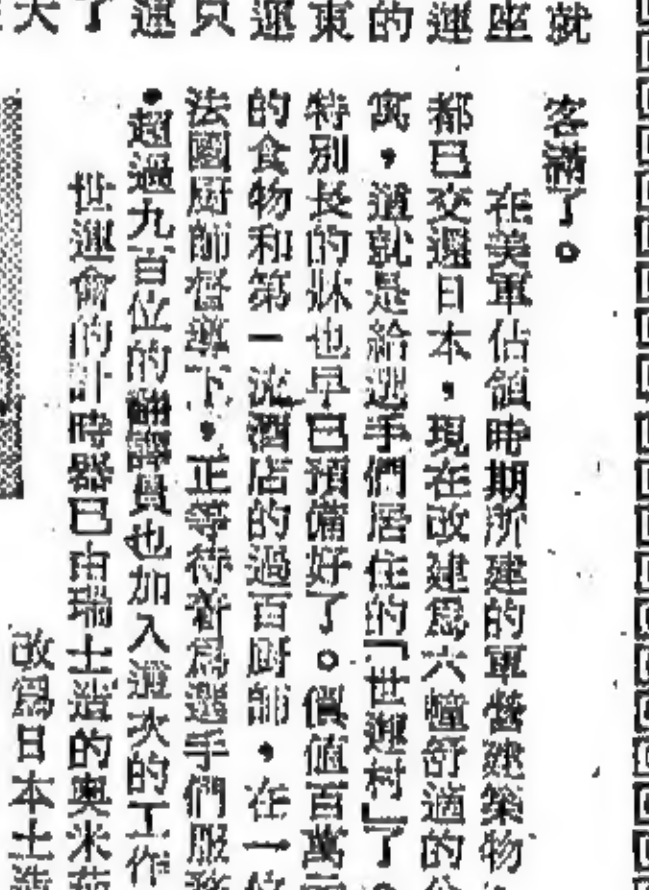 就
座
運
的
東
運
貝
運
了
大
客滿了。
在美軍佔領時期所建的軍營建築物
都已交還日本，現在改建爲六幢舒適的公
寓，這就是給選手們居住的「世運村」了。
特別長的牀也早已預備好了。價值百萬元
的食物和第一流酒店的過百厨師，在一位
法國厨師督導下，正等待着爲選手們服務
。超過九百位的翻譯員也加入這次的工作
世運會的計時器已由瑞士造的奧米茄
改爲日本土造